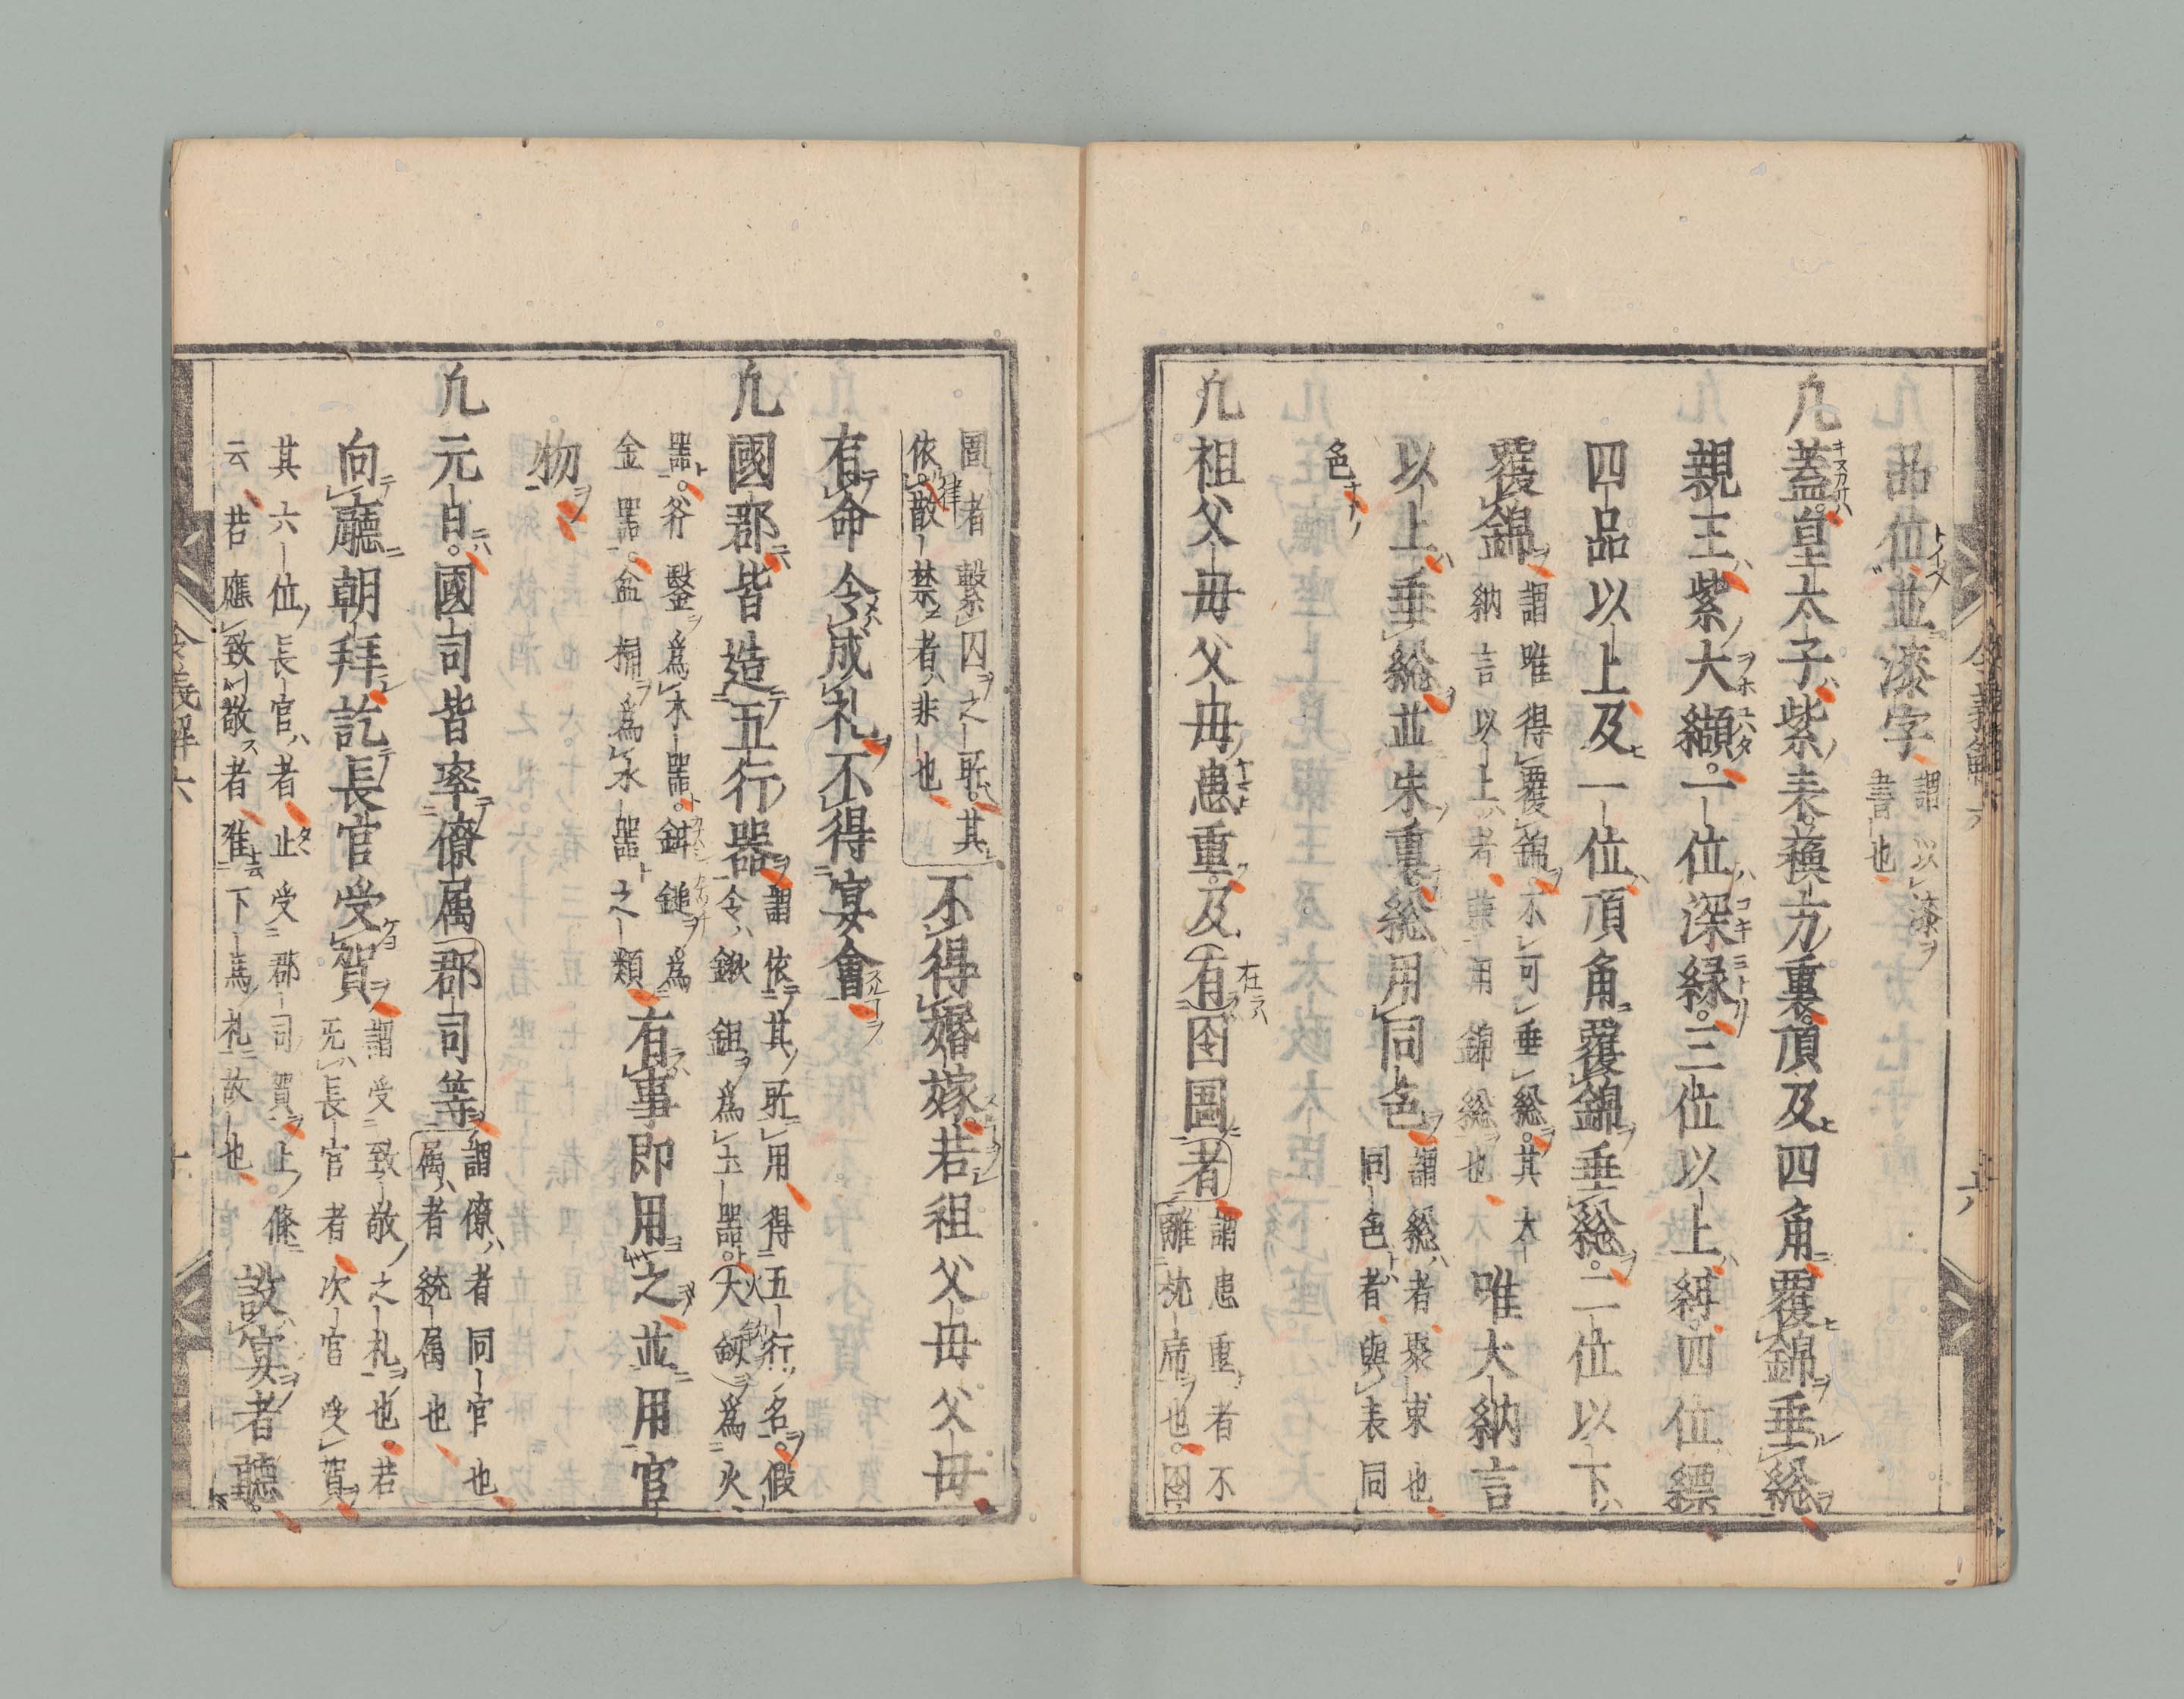 品位並漆字謂以漆
書也
凢蓋皇太子紫表蘓方裏頂及四角覆錦垂総
親王紫大纈一位深緑三位以上縹四位縹
四品以上及一位頂角覆錦垂総二位以下
覆錦謂唯得覆錦不可垂総其大
納言以上者兼用錦総也唯大納言
以上垂総並朱裏総用同色謂総者聚束也
同色者與表同
色
凢祖父母父母患重及有囹圄者謂患重者不
離枕席也囹
令義解六
六
圄者繫囚之所其
依律散禁者非也不得婚嫁若祖父母父母
有命令成礼不得宴會
凢國郡皆造五行器謂依其所用得五行名假
令鍬鉏爲土器火釼爲火
器斧鑿爲木器鉼鎚爲
金器盆桶爲水器之類有事即用之並用官
物
凢元日國司皆率僚属郡司等謂僚者同官也
属者統属也
向廳朝拜訖長官受賀謂受致敬之礼也若
无長官者次官受賀
其六位長官者止受郡司賀上條
云若應致敬者准下馬礼故也設宴者聽
令義解六